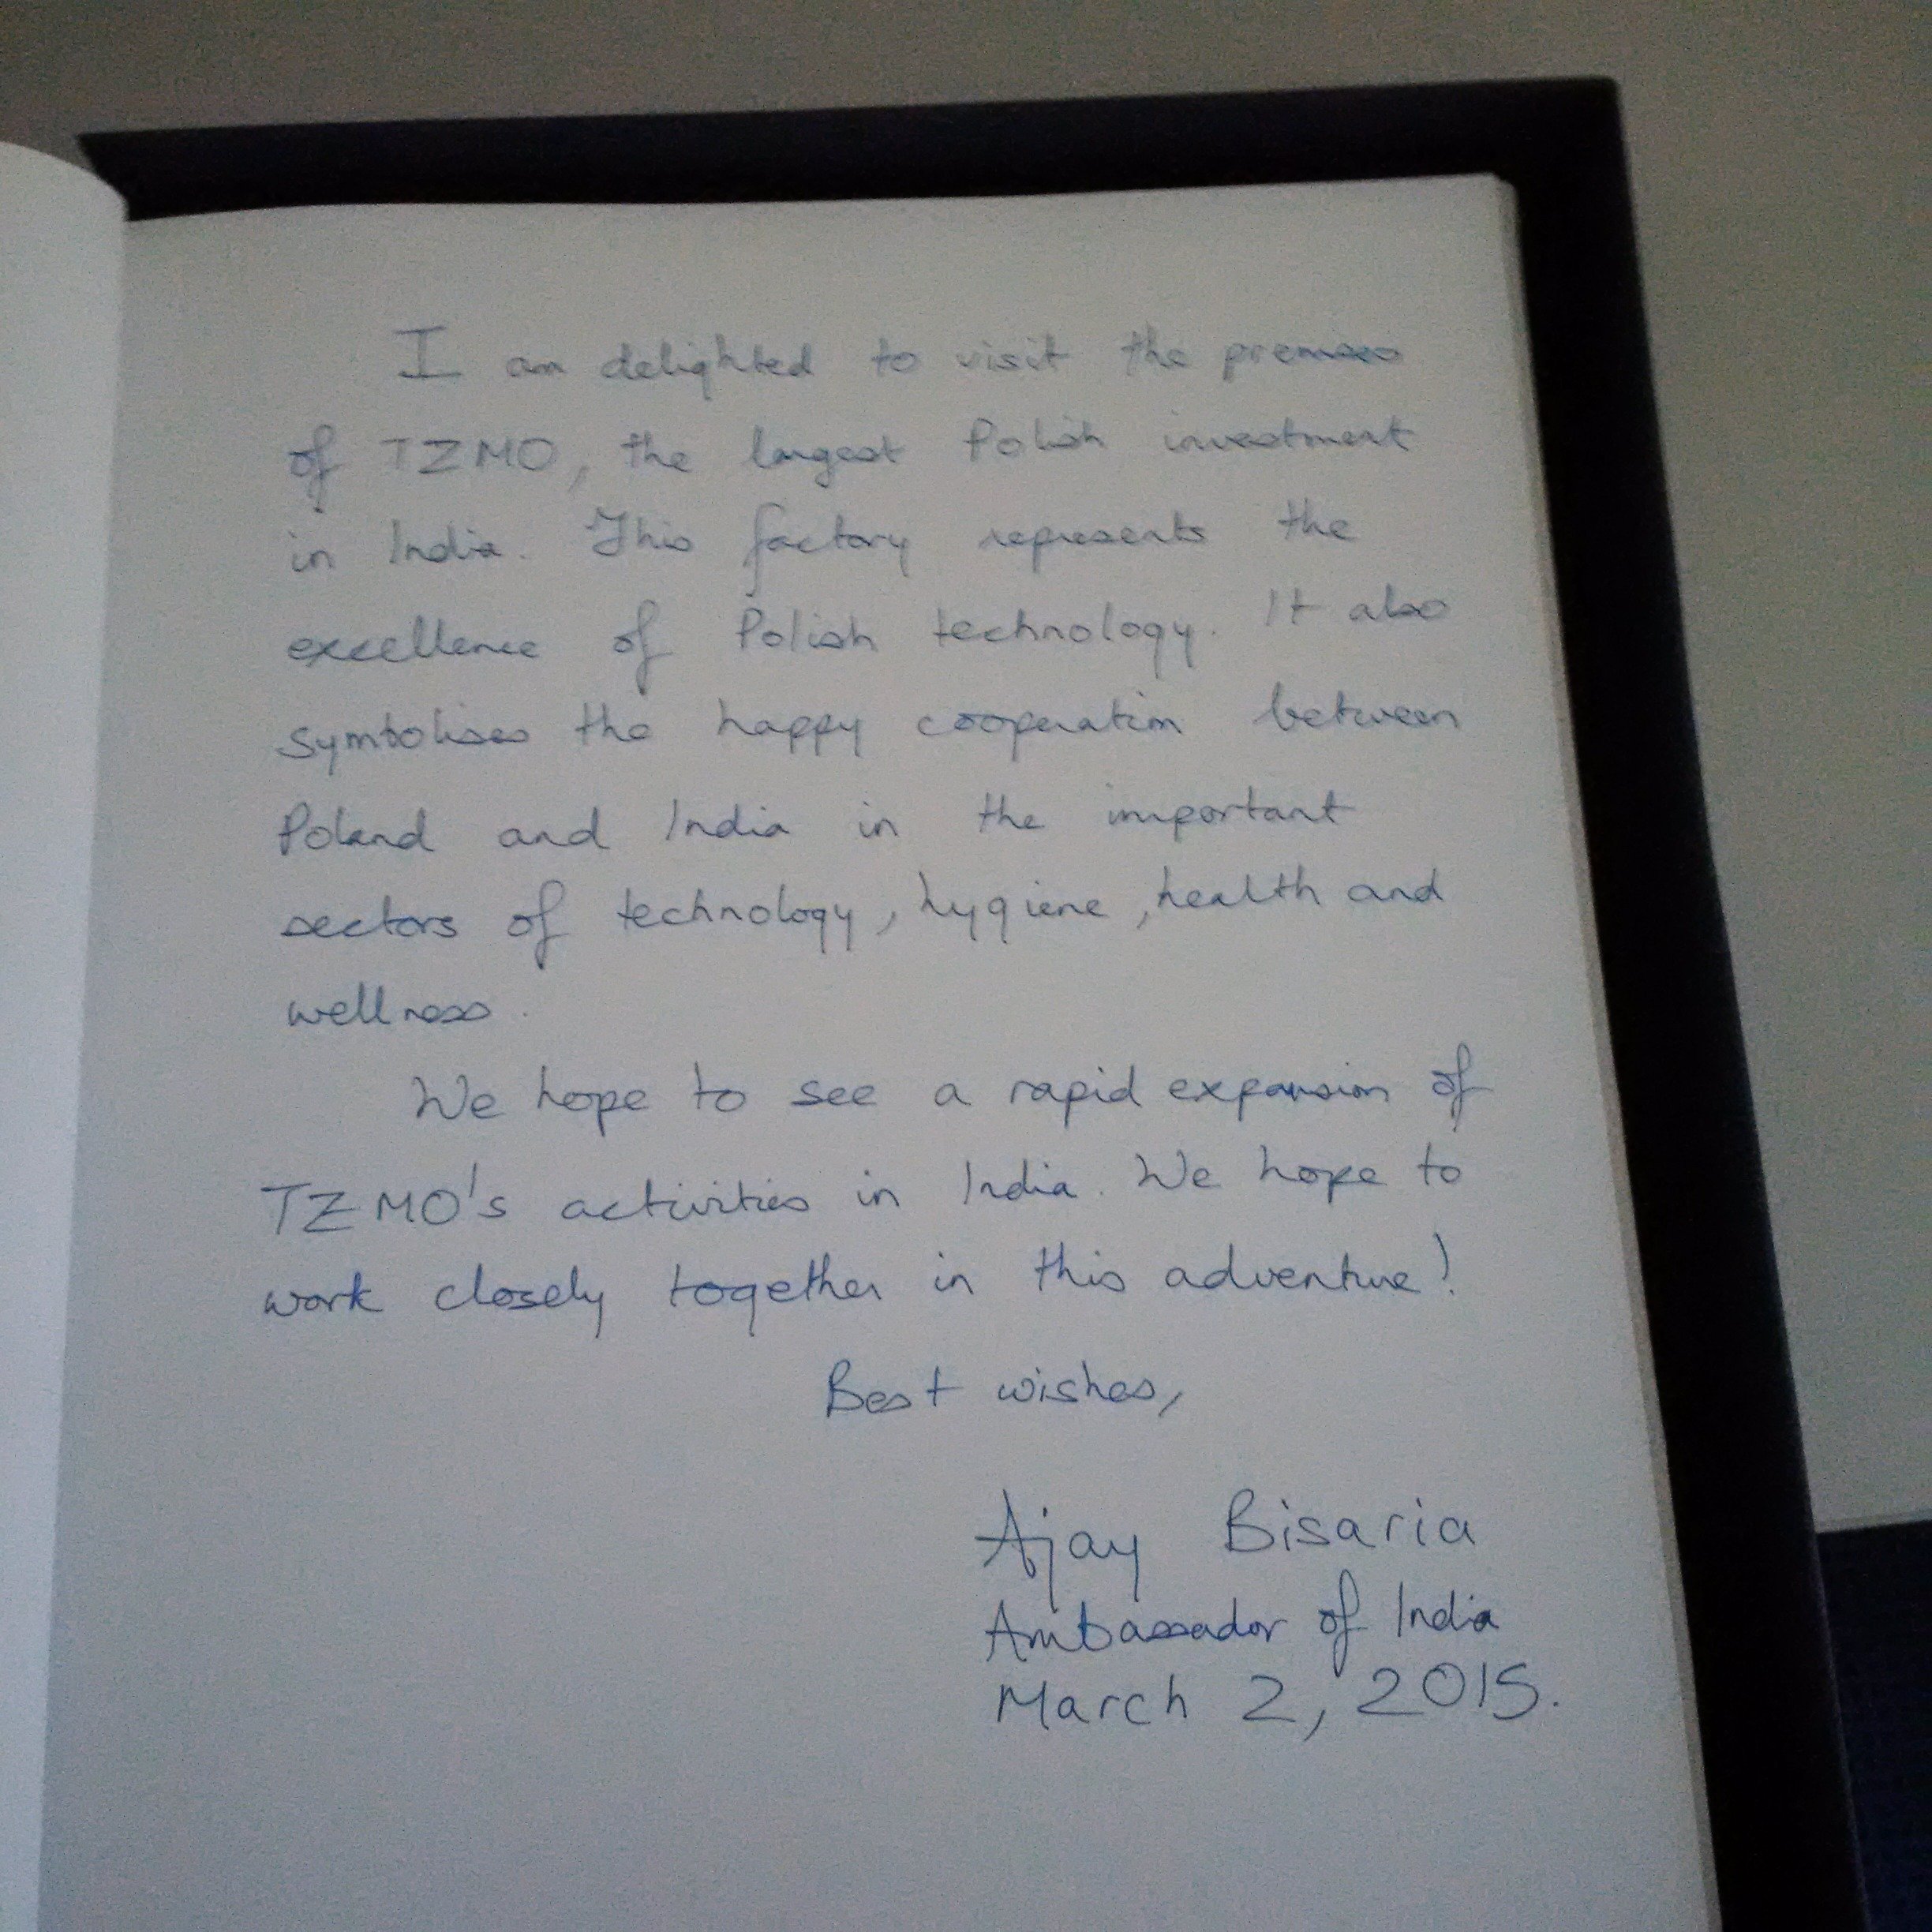 I am delighted to visit the premises
of TZMO, the largest Polish investment
in India. This factory represents the
excellence of Polish technology. It also
symbolises the happy cooperation between
Poland and India in the important
sectors of technology, hygiene, health and
wellness.
We hope to see a rapid expansion of
TZMO's activities in India. We hope to
work closely together in this adventure!
Best wishes,
Ajay Bisaria
Ambassador of India
March 2, 2015.